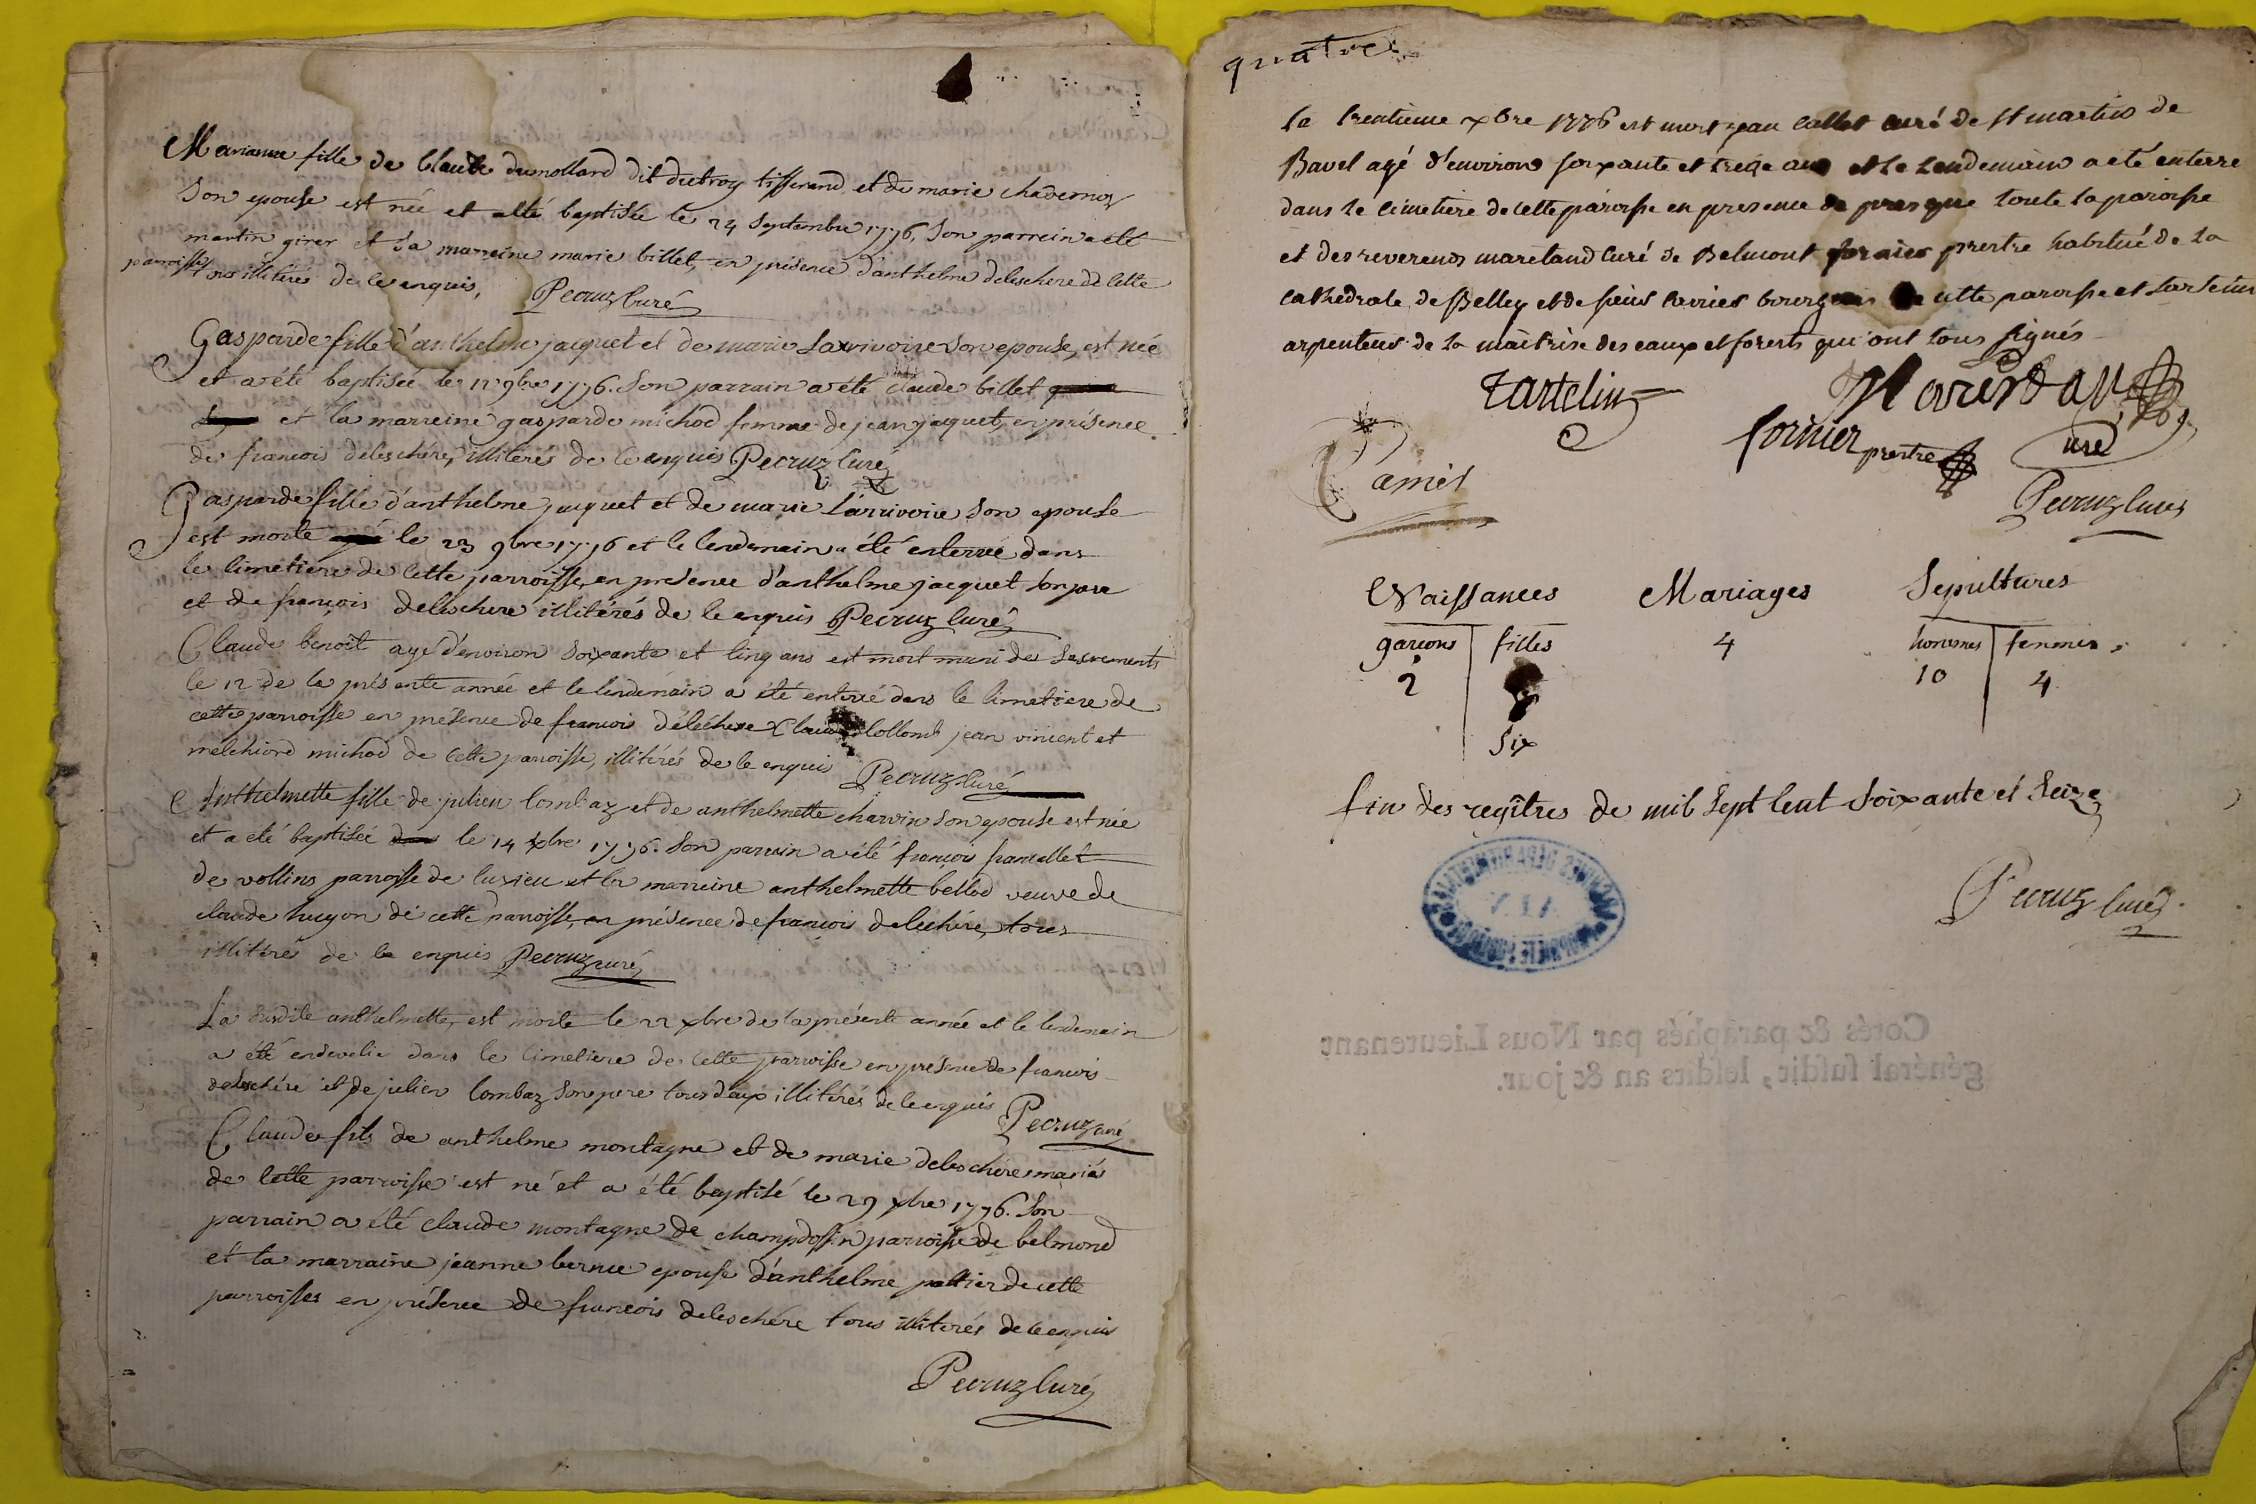 Marianne fille de Claude dumollard dit dubroy tisserand, et de marie chadernoz
Son epouse est née et a été baptisée le 24 Septembre 1776, Son parrein a été
martin girer et Sa marreine marie billet, en présence d'anthelme deleschere de Cette
parroisse
tous illitérés de ce enquis, Pecruz Curé
Gasparde fille d'anthelme jacquet et de marie Larrivoire Son epouse, est née
et a été baptisée le 12 9bre 1776. Son parrain a été claude billet
et la marreine gasparde michod femme de jean jacquet, en présence
de francois deleschére, illiterés de ce enquis Pecruz Curé
Gasparde fille d'anthelme jacquet et de marie Larrivoire Son epouse
est morte le 23 9bre 1776 et le lendemain a été enterrée dans
le Cimetière de Cette parroisse, en presence d'anthelme jacquet Son pere
et de françois deleschere illitérés de ce enquis Pecruz Curé
Claude benoit agé d'environ Soixante et Cinq ans est mort muni des Sacrements
le 12 de la présente année et le lendemain a été enterré dans le Cimetiere de
cette parroisse en présence de francois deléchere Claude Collomb jean vincent et
melchiord michod de Cette parroisse, illitérés de ce enquis Pecruz Curé
Anthelmette fille de julien Combaz et de anthelmette charvin Son epouse est née
et a été baptisée le 14 xbre 1776. Son parrain a été françois francillet
de vollins parroisse de luxieu et la marreine anthelmette bellod veuve de
claude hugon de cette parroisse, en présence de francois deleschére, tous
illitérés de ce enquis Pecruz curé
La Susdite anthelmette, est morte le 22 xbre de la présente année et le lendemain
a été ensevelie dans le Cimetiere de Cette parroisse en présence de francois
deleschére et de julien Combaz Son pere tous deux illitérés de ce enquis Pecruz curé
Claude fils de anthelme montagne et de marie deleschere mariés
de Cette parroisse est né et a été baptisé le 29 xbre 1776. Son
parrain a été claude montagne de champdossin parroisse de belmond
et la marraine jeanne bernu epouse d'anthelme peltier de cette
parroisse en présence de francois deleschére tous illiterés de ce enquis
Pecruz Curé
quatre
Le trentieme xbre 1776 est mort jean Callet curé de St martin de
Bavel agé d'environ soixante et treize ans et le Lendemain a eté enterré
dans le cimetiere de cette paroisse en presence de presque toute la paroisse
et des reverends maretand Curé de Belmont fornier prestre habitué de la
Cathedrale de Belley et de sieurs bourgeois de cette paroisse et tartelin
arpenteur de la maitrise des eaux et forests qui ont tous signés
tartelin
Marestan
Curé
fornier prestre
Pecruz Curé
Naissances Mariages Sepultures
garcons filles 4 hommes femmes
2 10 4
Six
fin des regîtres de mil Sept Cent Soixante et Seize
Pecruz Curé
ARCHIVES DÉPARTEMENTALES
AIN
Cotés & paraphés par Nous Lieutenant
général susdit, lesdits an & jour.